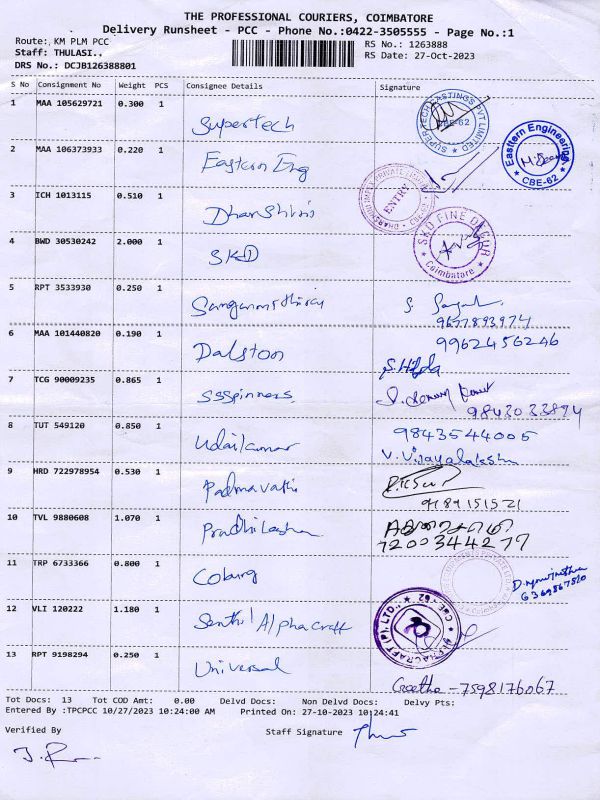 THE PROFESSIONAL COURIERS, COIMBATORE
Delivery Runsheet - PCC - Phone No.:0422-3505555 - Page No.:1
Route: KM PLM PCC RS No.: 1263888
Staff: THULASI.. RS Date: 27-Oct-2023
DRS No.: DCJB126388801
S No Consignment No Weight PCS Consignee Details Signature
1 MAA 105629721 0.300 1 Supertech SUPERTECH CASTINGS PVT LIMITED CBE-62
2 MAA 106373933 0.220 1 Eastern Eng Easttern Engineering CBE-62
3 ICH 1013115 0.510 1 Dharshini ENTRY
4 BWD 30530242 2.000 1 SKD SKD FINE Coimbatore
5 RPT 3533930 0.250 1 9677893974
6 MAA 101440820 0.190 1 Dalston 9962456246
7 TCG 90009235 0.865 1 SSSpinners 9843033894
8 TUT 549120 0.850 1 Udaikumar 9843544005
V. Vijayalakshmi
9 HRD 722978954 0.530 1 Padmavathi 9189151521
10 TVL 9880608 1.070 1 7200344277
11 TRP 6733366 0.800 1 Coburg 6369867810
12 VLI 120222 1.180 1 Senthil Alphacraft ALPHACRAFT (P) LTD., CBE-62
13 RPT 9198294 0.250 1 Universal Geetha - 7598176067
Tot Docs: 13 Tot COD Amt: 0.00 Delvd Docs: Non Delvd Docs: Delvy Pts:
Entered By :TPCPCC 10/27/2023 10:24:00 AM Printed On: 27-10-2023 10:24:41
Verified By Staff Signature